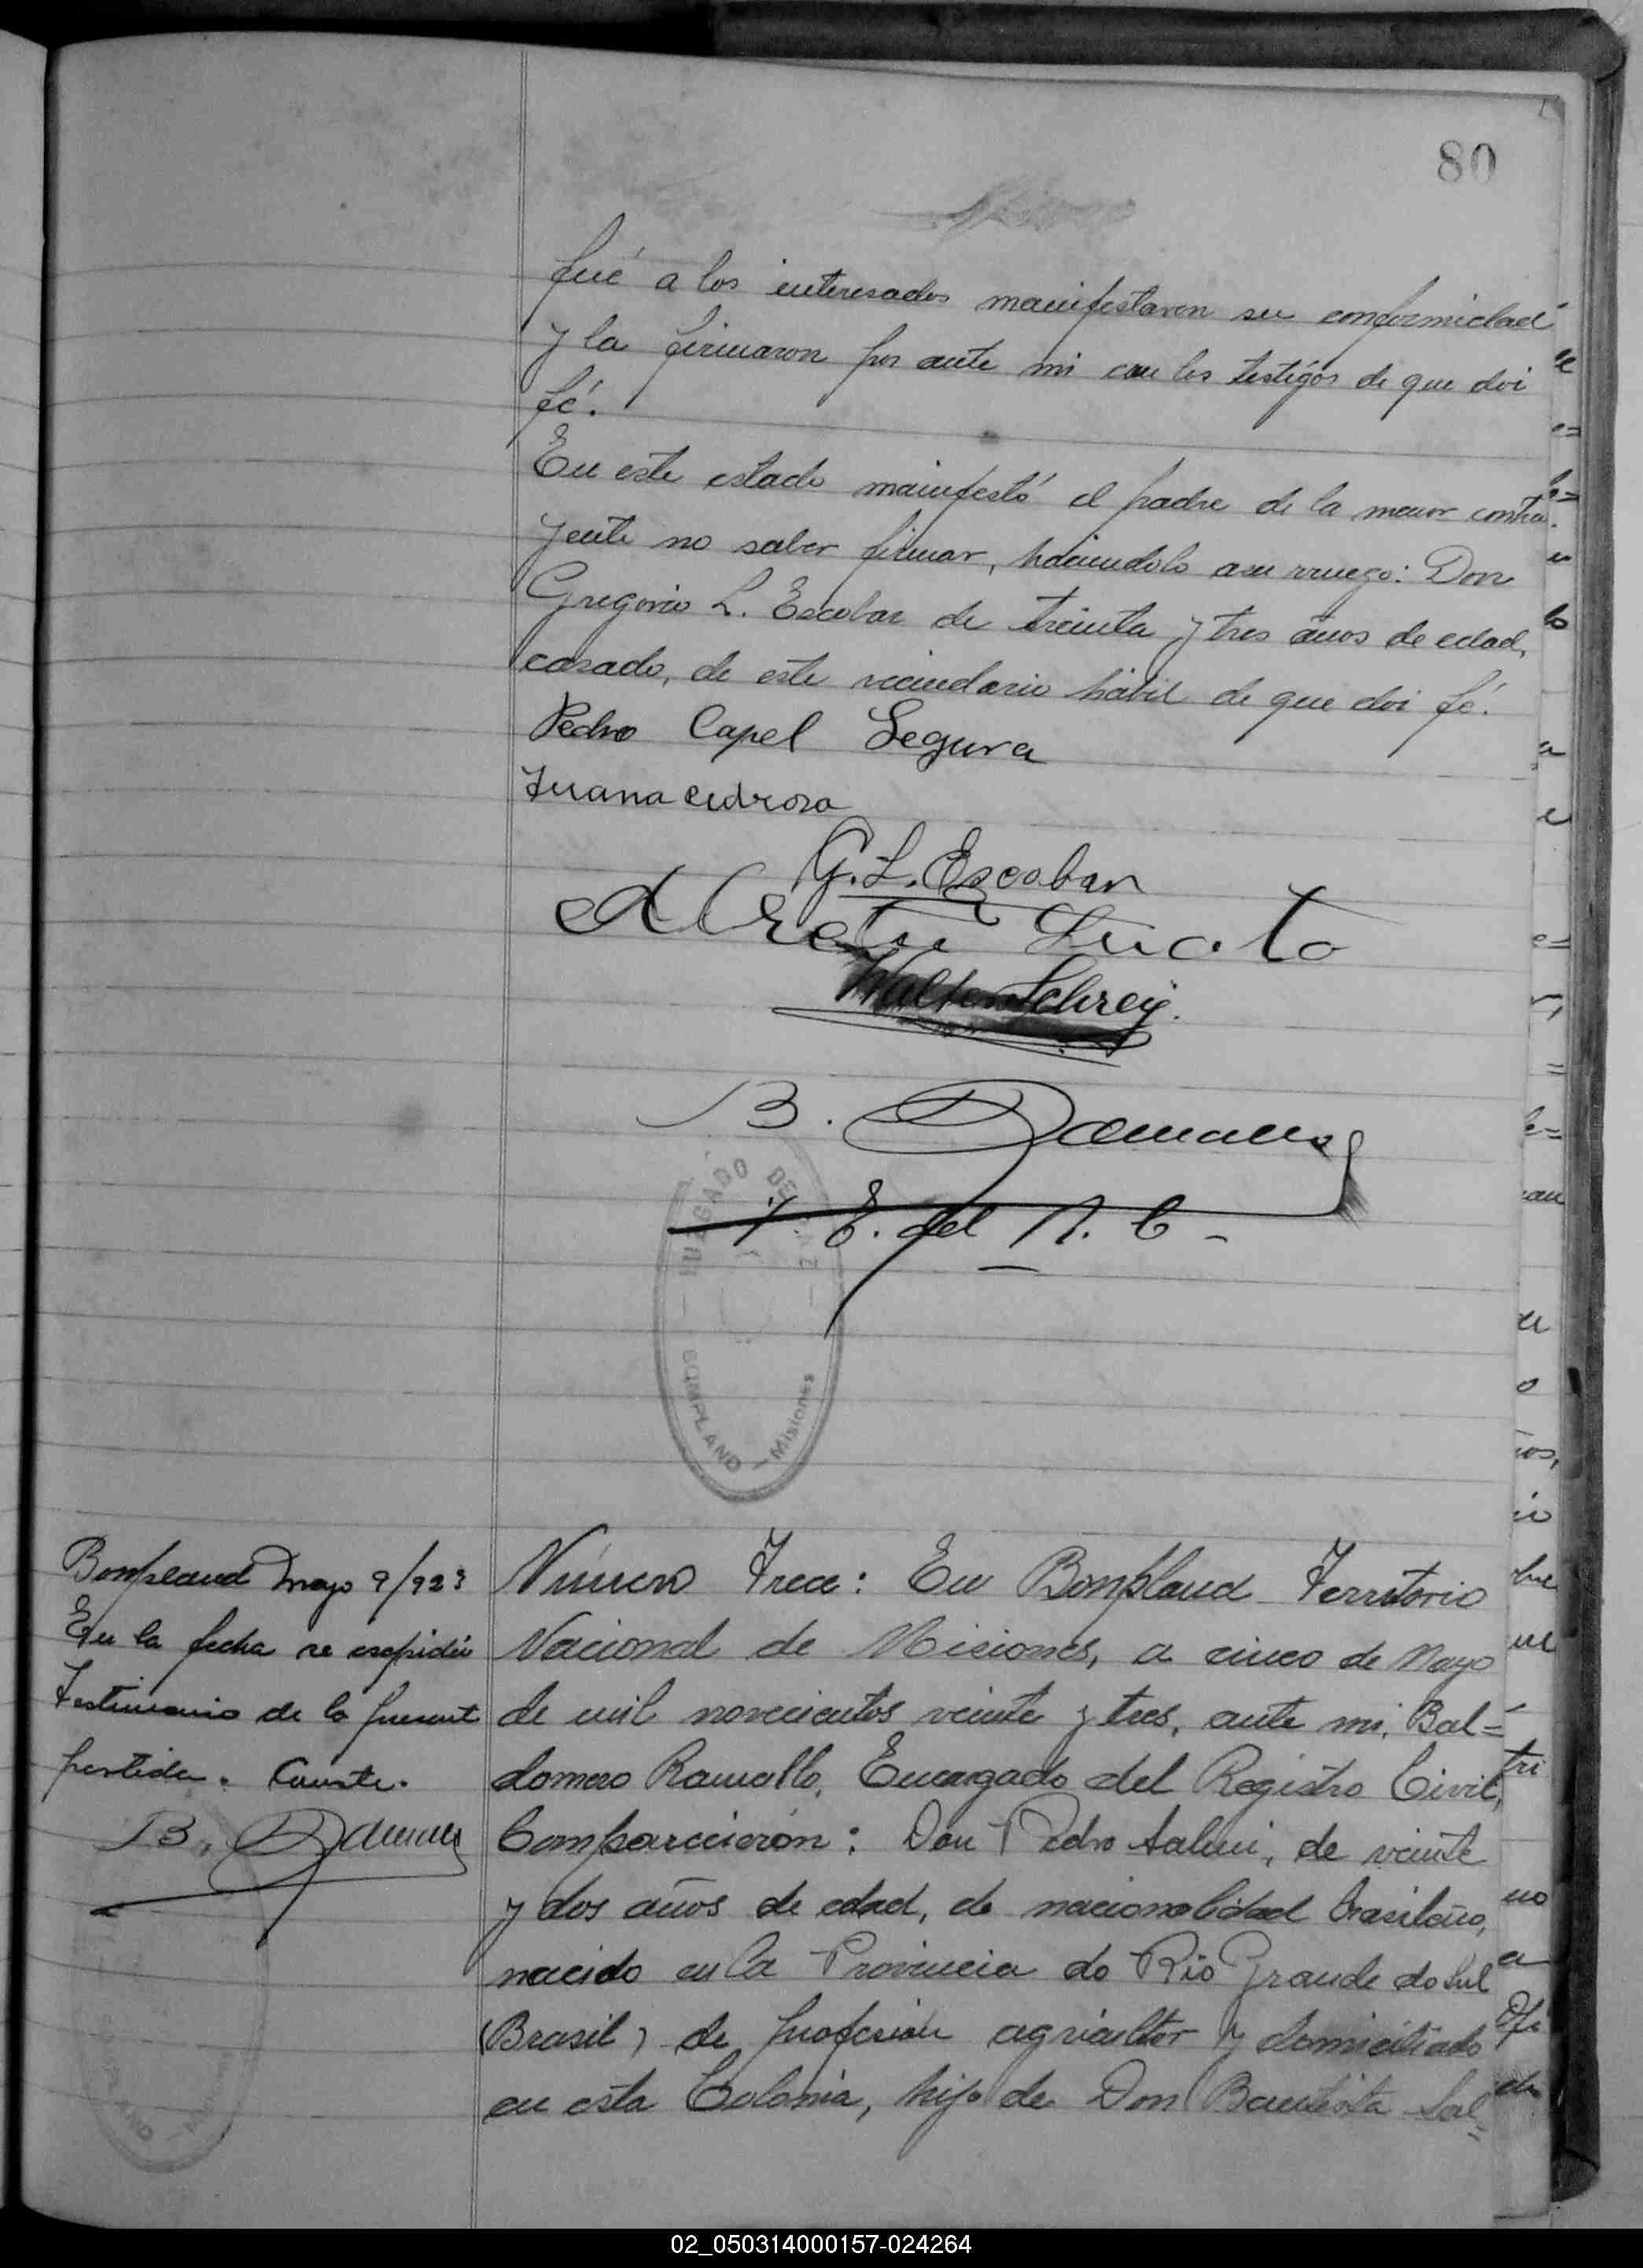 80
fué a los interesados manifestaron su conformidad
y la firmaron por ante mi con los testigos de que doi
fé.
En este estado manifestó el padre de la menor contra-
yente no saber firmar, haciendolo a su rruego: Don
Gregorio L. Escobar de treinta y tres años de edad,
casado, de este vecindario hábil de que doi fé.
Pedro Capel Segura
Juana
G. L. Escobar
Walter
B.
E. del R. C -
JUZGADO DE PAZ
BOMPLAND - Misiones
Bonpland Mayo 9/923
En la fecha se espidió
testimonio de la present
partida. Conste.
B.
Número Trece: En Bonpland Territorio
Nacional de Misiones, a cinco de Mayo
de mil novecientos veinte y tres, ante mi, Bal=
domero Ramallo, Encargado del Registro Civil,
Comparecieron: Don Pedro Salvi, de veinte
y dos años de edad, de nacionalidad brasileño,
nacido en la Provincia do Rio Grande do Sul
(Brasil) de profesión agricultor y domiciliado
en esta Colonia, hijo de Don Bautista Sal=
02_050314000157-024264